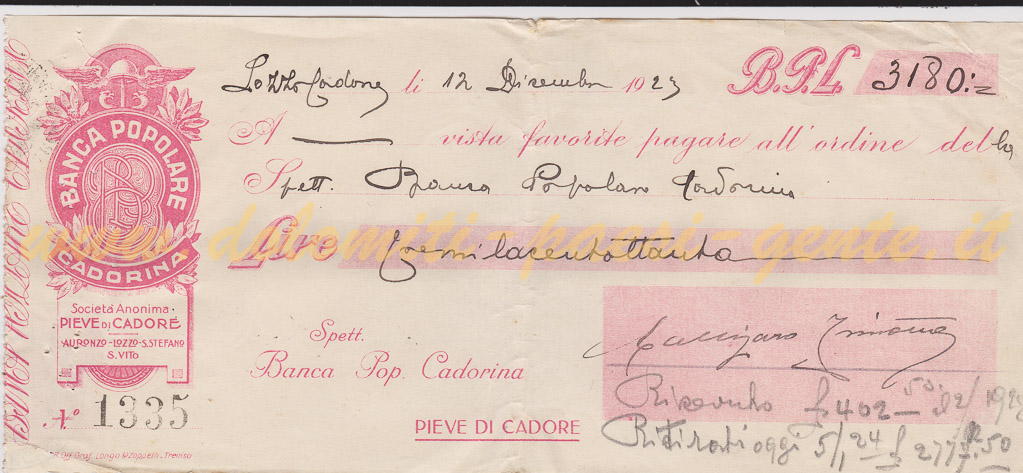 BANCA POPOLARE
CADORINA
Società Anonima
PIEVE DI CADORE
AURONZO-LOZZO-S.STEFANO
S.VITO
Nº 1335
Off. Graf. Longo & Zoppelli - Treviso
Lozzo Cadore li 12 Dicembre 1923
B.P.L. 3180:=
A — vista favorite pagare all'ordine della
Spett. Banca Popolare Cadorina
Lire tremilacentottanta
www.dolomiti-paesi-gente.it
Spett.
Banca Pop. Cadorina
PIEVE DI CADORE
Ricevuto £ 402 - 50
Ritirati oggi 5/1 24 £ 277 50